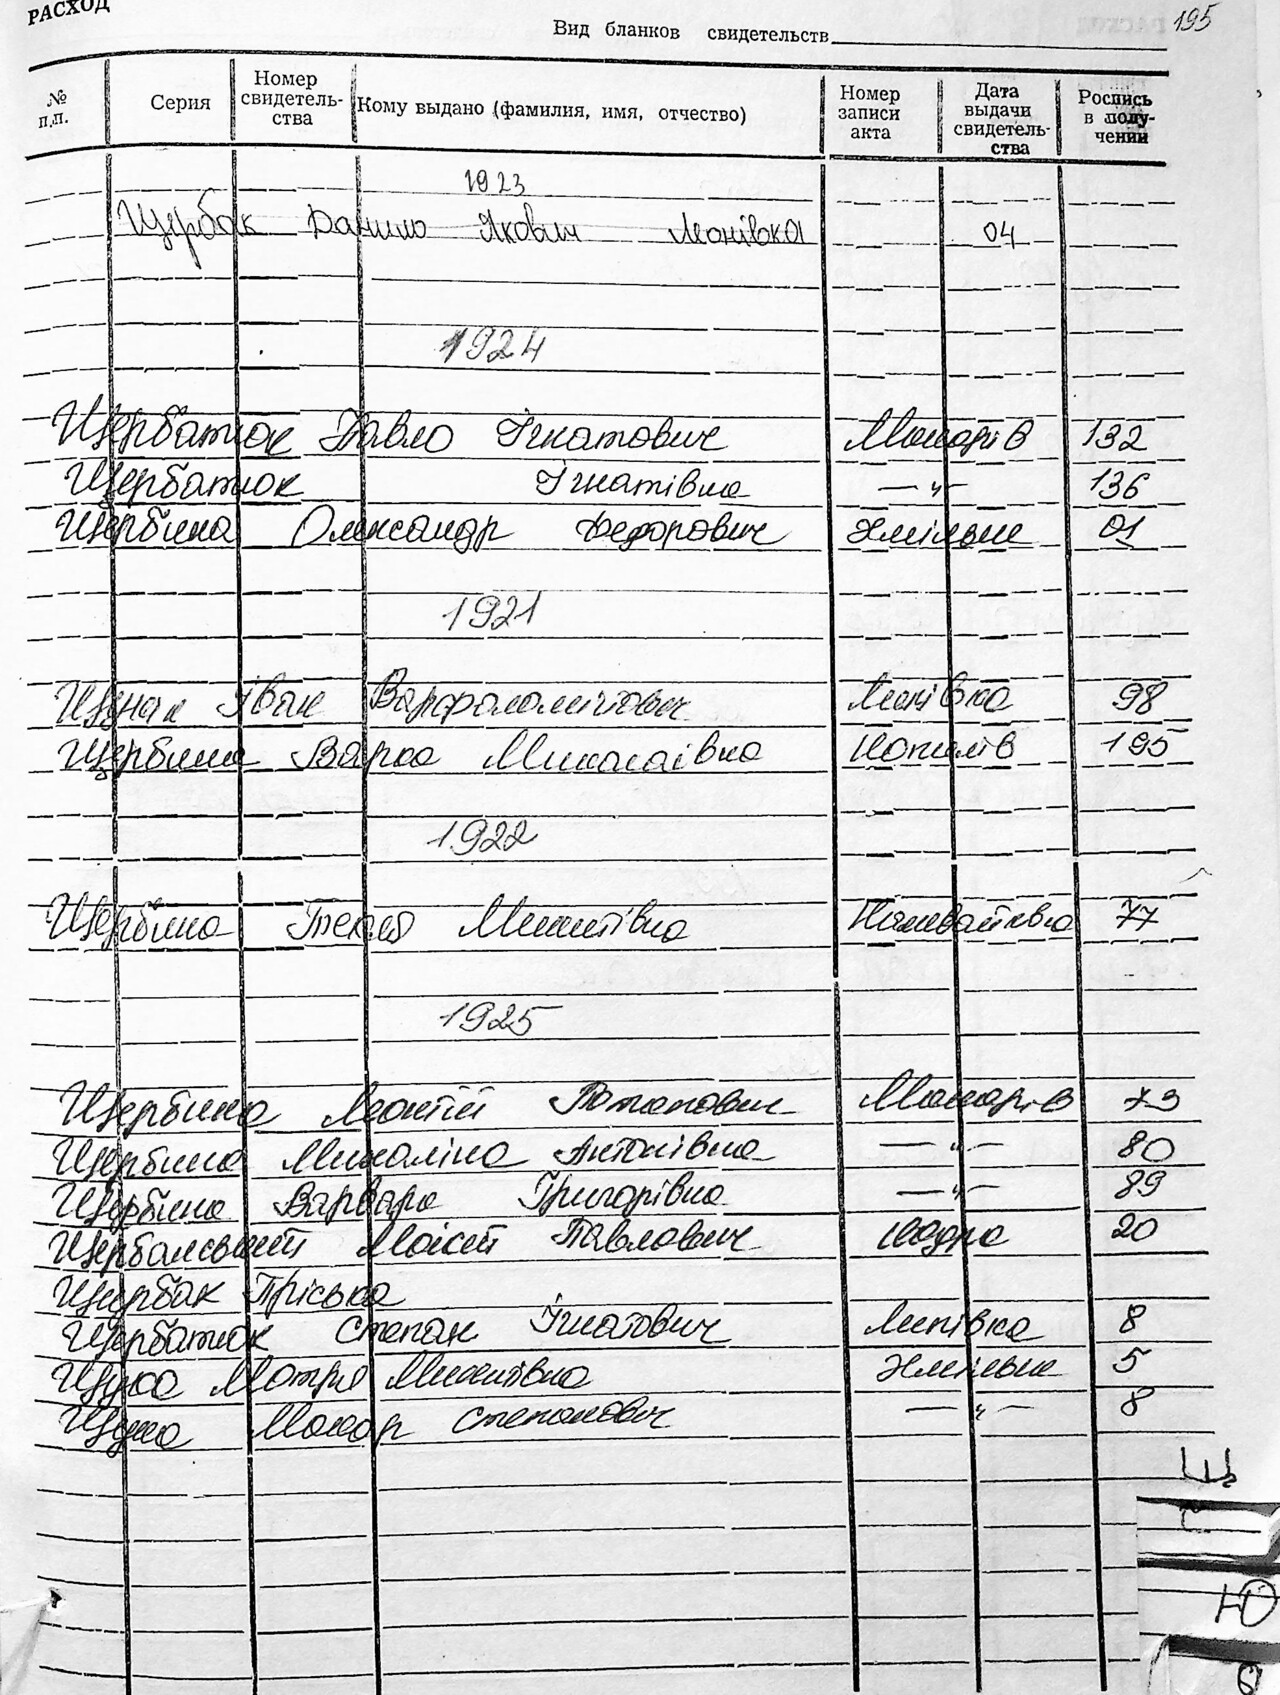 РАСХОД
195
Вид бланков свидетельств
№ п.п.
Серия
Номер свидетель-ства
Кому выдано (фамилия, имя, отчество)
Номер записи акта
Дата выдачи свидетель-ства
Роспись в полу-чении
1923
Щербак Данило Якович Леонівка 04
1924
Щербатюк Павло Ігнатович Макарів 132
Щербатюк Ігнатівна —"— 136
Щербина Олександр Федорович Хмільне 01
1921
Щенак Іван Варфоломійович Липівка 98
Щербина Варка Миколаївна Копилів 195
1922
Щербина Текля Микитівна Наливайківка 77
1925
Щербина Леонтій Потапович Макарів 73
Щербина Михаліна Антонівна —"— 80
Щербина Варвара Григорівна —"— 89
Мойсей Павлович 20
Щербак Пріська
Щербатюк Степан Ігнатович Липівка 8
Щука Мотря Микитівна Хмільне 5
Щука Макар Степанович —"— 8
Щ
Ю